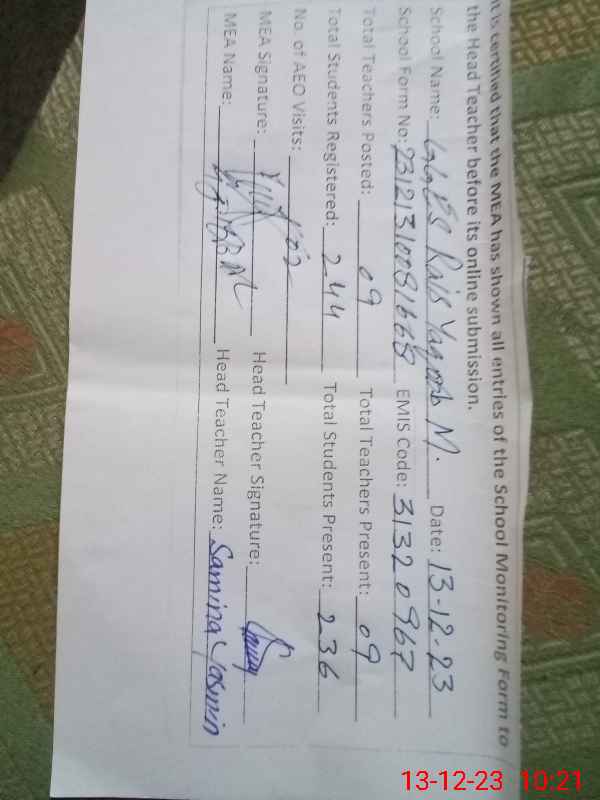 It is certified that the MEA has shown all entries of the School Monitoring Form to
the Head Teacher before its online submission.
School Name: GGES Rais Yaqoob M. Date: 13-12-23
School Form No: 23121310081668 EMIS Code: 31320967
Total Teachers Posted: 09 Total Teachers Present: 09
Total Students Registered: 244 Total Students Present: 236
No. of AEO Visits:
MEA Signature: Head Teacher Signature:
MEA Name: Head Teacher Name: Samina Yasmin
13-12-23 10:21